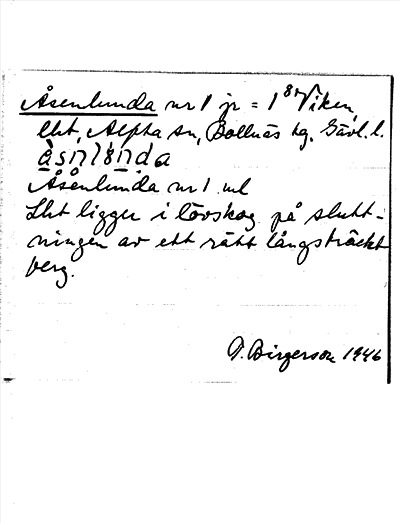 Åsenlunda nr 1 jr = 1⁸ Viken,
lht, Alfta sn, Bollnäs tg. Gävl. l.
Åsenlunda nr 1 ml
Lht ligger i lövskog på slutt-
ningen av ett rätt långsträckt
berg.
P. Birgerson 1946